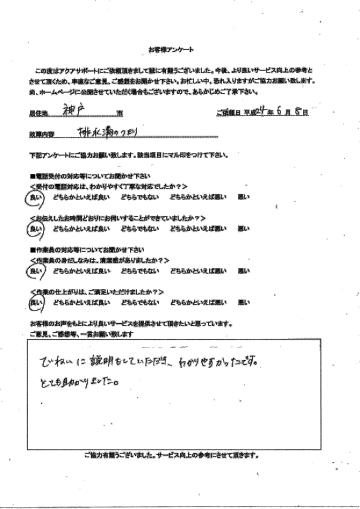 お客様アンケート
この度はアクアサポートにご依頼頂きまして誠に有難うございました。今後、より良いサービス向上の参考と
させて頂くため、率直なご意見、ご感想をお聞かせ下さい。お忙しい中、恐れ入りますがご協力お願い致します。
尚、ホームページに公開させていただく場合もございますので、あらかじめご了承下さい。
居住地 神戸 市 ご依頼日 平成24年6月8日
故障内容 排水溝のつまり
下記アンケートにご協力お願い致します。該当項目にマル印をつけて下さい。
■電話受付の対応等についてお聞かせ下さい
<受付の電話対応は、わかりやすく丁寧な対応でしたか?>
良い どちらかといえば良い どちらでもない どちらかといえば悪い 悪い
<お伝えしたお時間どおりにお伺いすることができていましたか?>
良い どちらかといえば良い どちらでもない どちらかといえば悪い 悪い
■作業員の対応等についてお聞かせ下さい
<作業員の身だしなみは、清潔感がありましたか?>
良い どちらかといえば良い どちらでもない どちらかといえば悪い 悪い
<作業の仕上がりは、ご満足いただけましたか?>
良い どちらかといえば良い どちらでもない どちらかといえば悪い 悪い
お客様のお声をもとにより良いサービスを提供させて頂きたいと思っています。
ご意見、ご感想等、一言お願い致します
ていねいに説明をしていただき、わかりやすかったです。
とても助かりました。
ご協力有難うございました。サービス向上の参考にさせて頂きます。